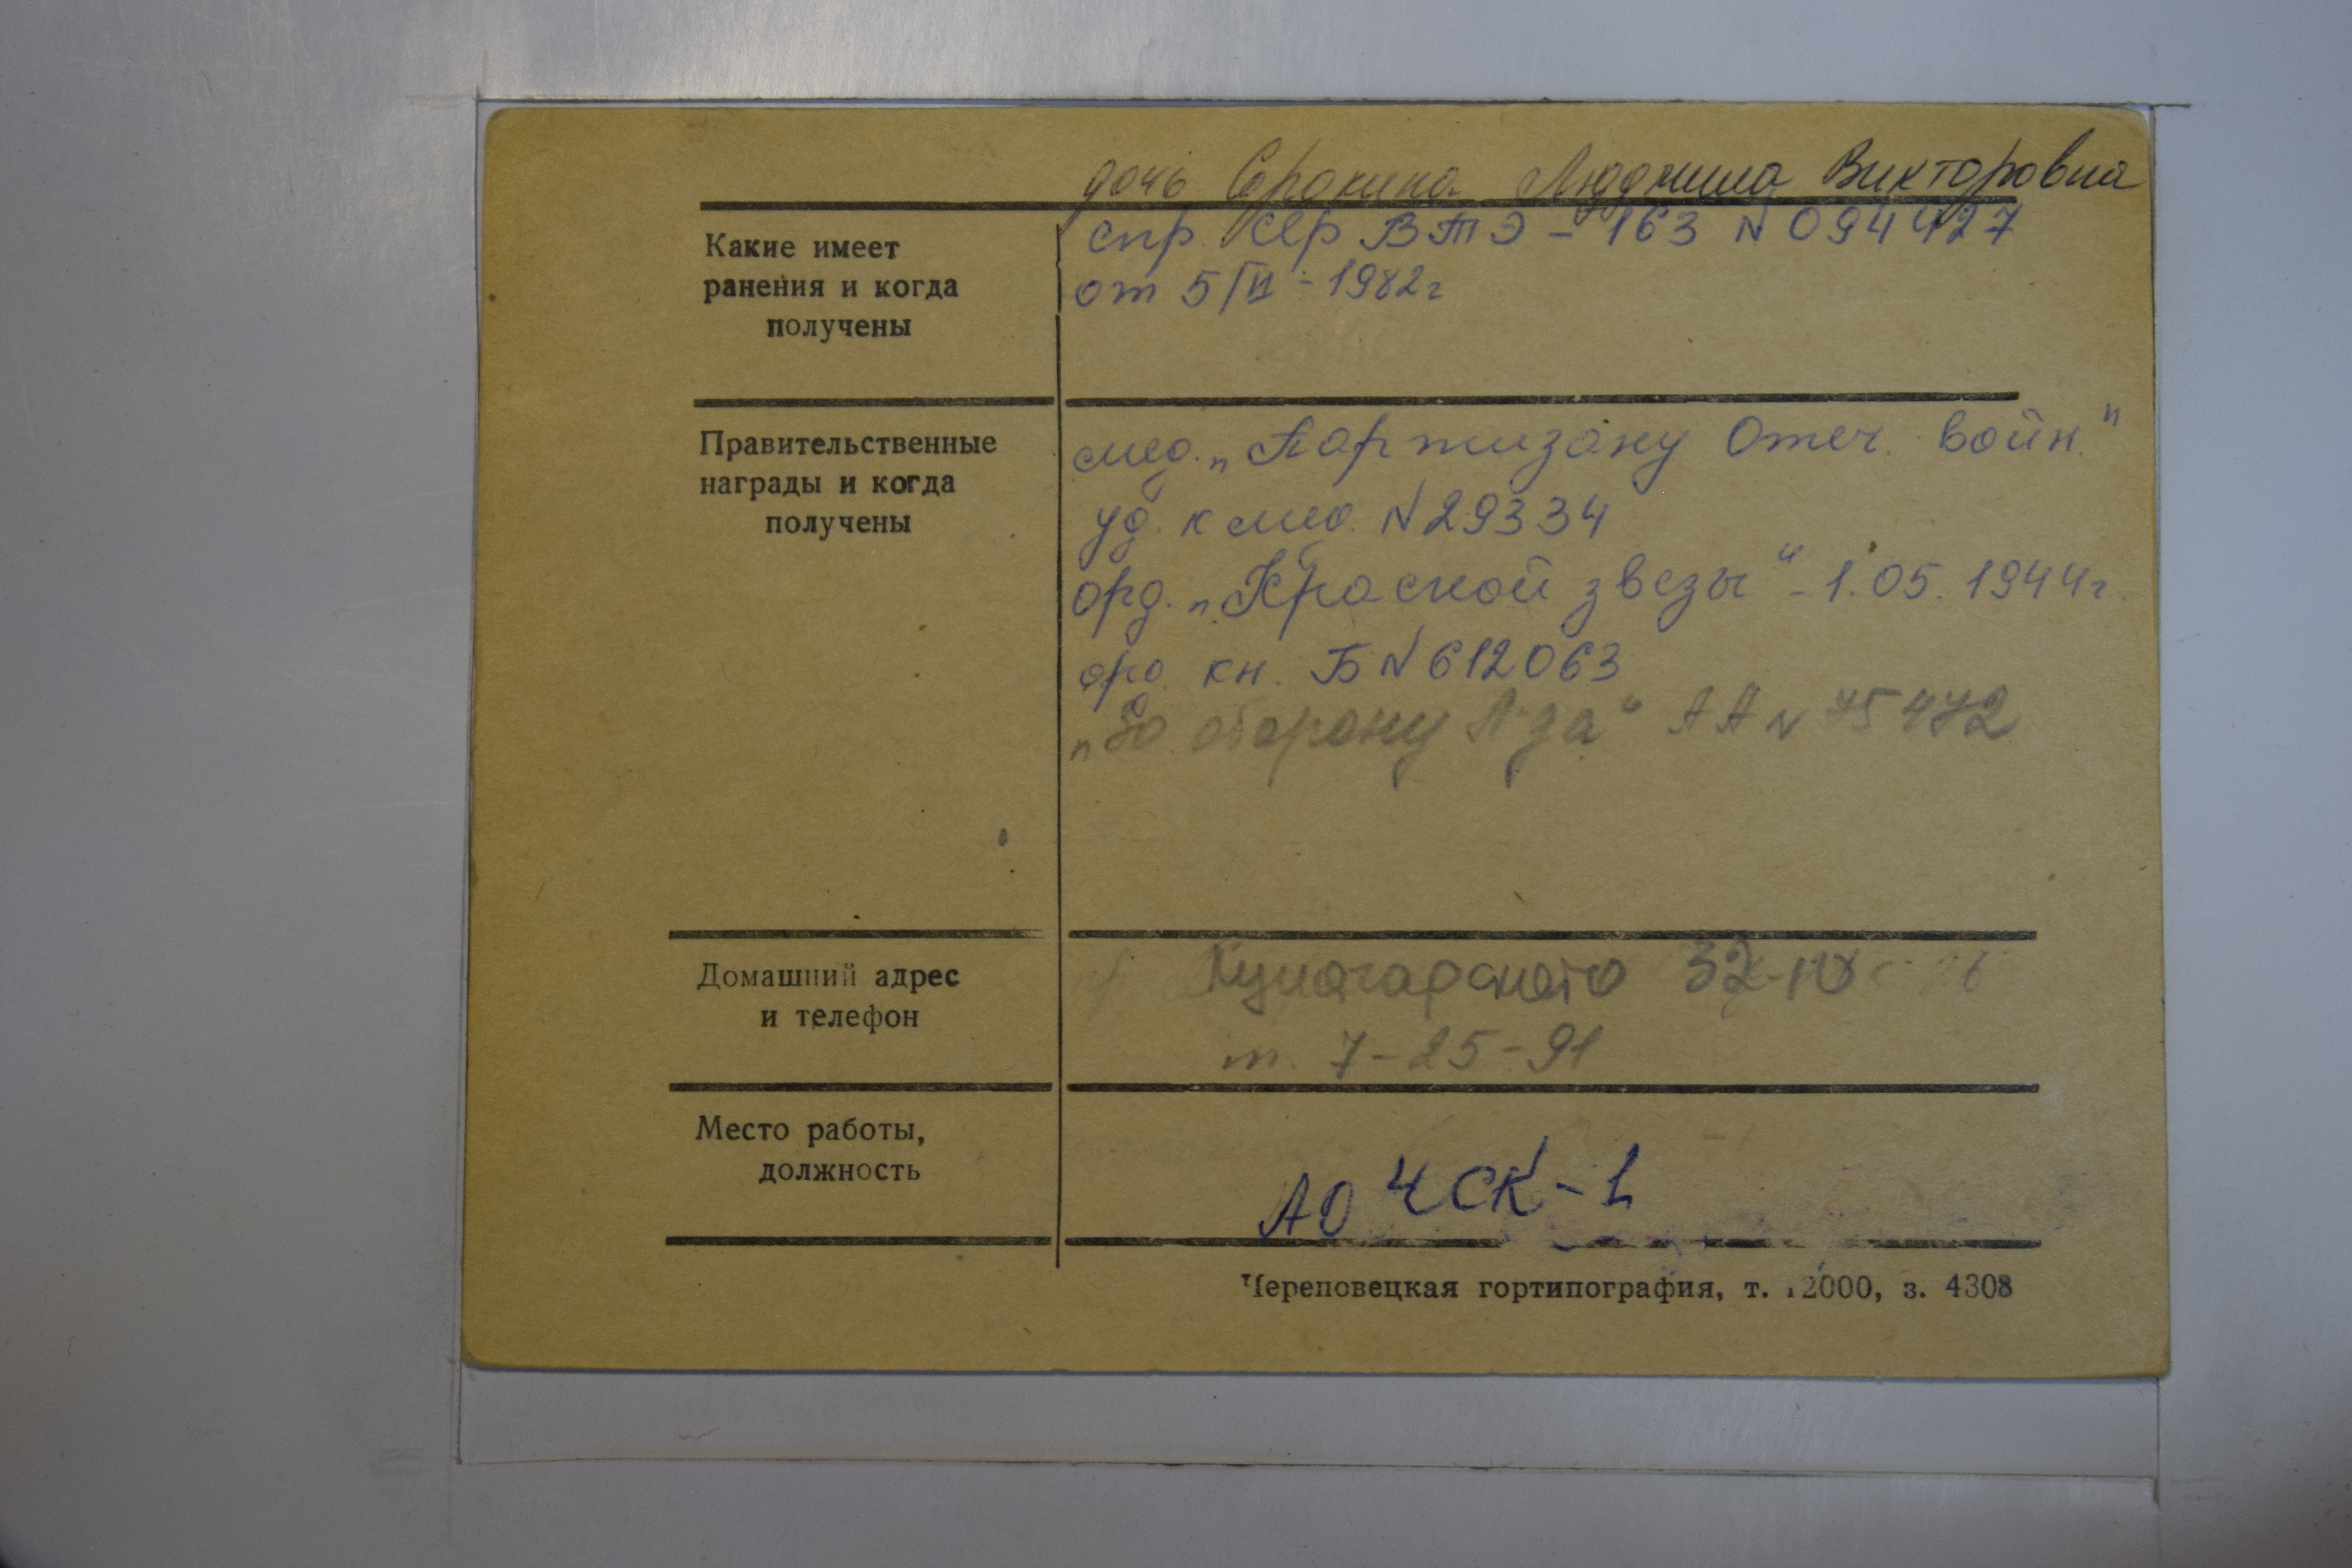 дочь Сорокина Людмила Викторовна
Какие имеет
ранения и когда
получены
спр. сер ВТЭ - 163 N 094427
от 5/VI - 1982г
Правительственные
награды и когда
получены
мед. „Партизану Отеч. войн."
уд. к мед. N 29334
орд. „Красной звезы" - 1.05.1944г.
орд. кн. Б N 612063
„За оборону Л-да" АА N 75472
Домашний адрес
и телефон
Луначарского 32-
т. 7-25-91
Место работы,
должность
АО ЧСК-1
Череповецкая гортипография, т. 12000, з. 4308